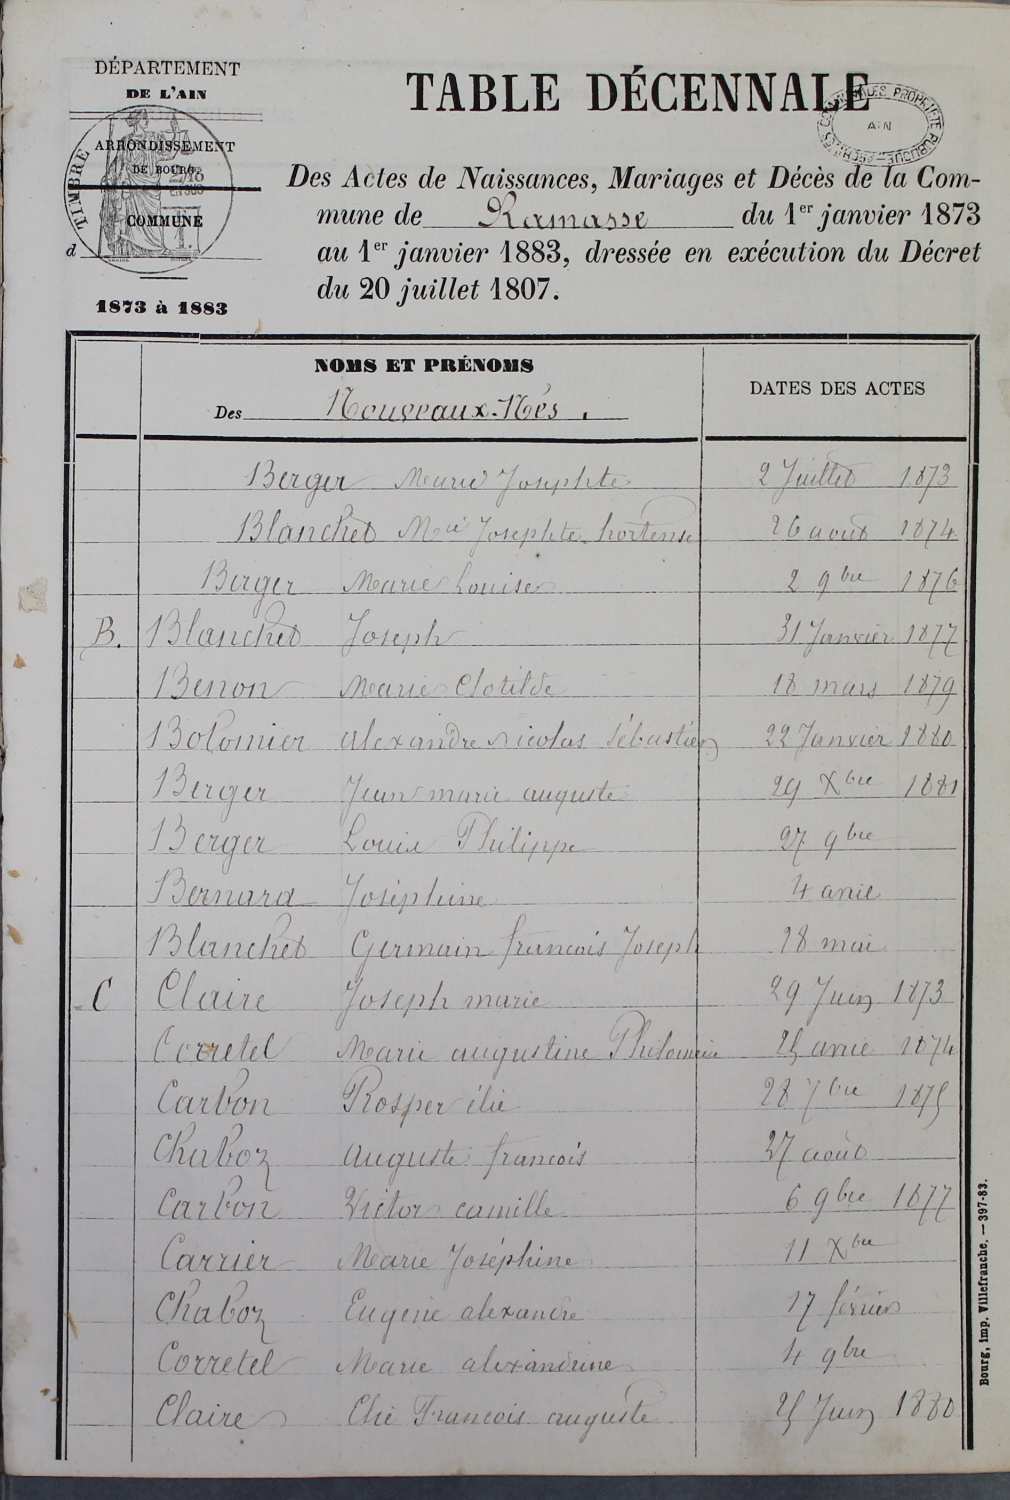 DÉPARTEMENT
DE L'AIN
ARRONDISSEMENT
DE BOURG
COMMUNE
d
TIMBRE
1873 à 1883
TABLE DÉCENNALE
COMMUNALES PROPRIÉTÉ PUBLIQUE — ARCHIVES
AIN
Des Actes de Naissances, Mariages et Décès de la Com-
mune de Ramasse du 1er janvier 1873
au 1er janvier 1883, dressée en exécution du Décret
du 20 juillet 1807.
NOMS ET PRÉNOMS
Des Nouveaux-Nés.
DATES DES ACTES
Berger Marie Josephte 2 Juillet 1873
Blanchet Mie Josephte hortense 26 aout 1874
Berger Marie Louise 2 9bre 1876
B. Blanchet Joseph 31 Janvier 1877
Benon Marie Clotilde 18 mars 1879
Bolomier alexandre nicolas Sébastien 22 Janvier 1880
Berger Jean marie auguste 29 Xbre 1881
Berger Louis Philippe 27 9bre
Bernard Joséphine 4 avril
Blanchet Germain francois Joseph 28 mai
C Claire Joseph marie 29 Juin 1873
Corretel Marie augustine Philomène 25 avril 1874
Carbon Rosper élie 28 7bre 1875
Chaboz auguste francois 27 août
Carbon Victor camille 6 9bre 1877
Carrier Marie Joséphine 11 Xbre
Chaboz Eugène alexandre 17 février
Corretel Marie alexandrine 4 9bre
Claire Elie Francois auguste 25 Juin 1880
Bourg, imp. Villefranche. — 397-83.